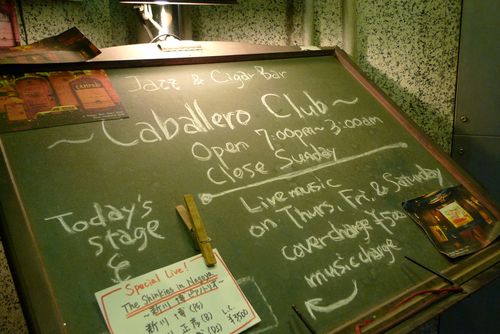 Jazz & Cigar Bar
~Caballero Club~
Open 7:00pm~3:00am
Close Sunday
Live music
on Thurs, Fri, & Saturday
cover charge ¥500
music charge
Today's
stage
Special Live!
The Shinkies in Nagoya
新川
¥3500